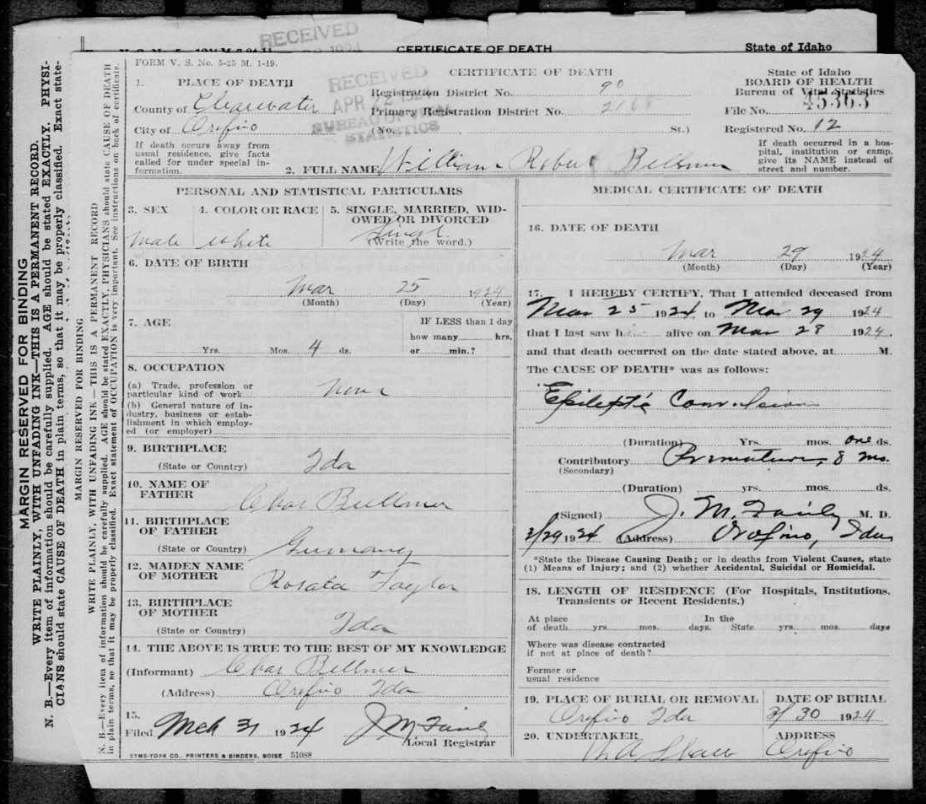 RECEIVED
CERTIFICATE OF DEATH
State of Idaho
FORM V. S. No. 5-25 M. 1-19.
CERTIFICATE OF DEATH
State of Idaho
BOARD OF HEALTH
Bureau of Vital Statistics
File No. 45363
Registered No. 12
If death occurred in a hos-
pital, institution or camp,
give its NAME instead of
street and number.
1. PLACE OF DEATH
County of Clearwater
City of Orofino
If death occurs away from
usual residence, give facts
called for under special in-
formation.
RECEIVED
APR 22 1924
BUREAU OF VITAL
STATISTICS
Registration District No. 90
Primary Registration District No.
(No. St.)
2. FULL NAME William Robert Bellmer
PERSONAL AND STATISTICAL PARTICULARS
3. SEX
Male
4. COLOR OR RACE
White
5. SINGLE, MARRIED, WID-
OWED OR DIVORCED
Single
(Write the word.)
6. DATE OF BIRTH
Mar 25 1924
(Month) (Day) (Year)
7. AGE
IF LESS than 1 day
how many hrs.
Yrs. Mos. 4 ds. or min.?
8. OCCUPATION
(a) Trade, profession or
particular kind of work
None
(b) General nature of in-
dustry, business or estab-
lishment in which employ-
ed (or employer)
9. BIRTHPLACE
(State or Country) Ida
10. NAME OF
FATHER
Bellmer
11. BIRTHPLACE
OF FATHER
(State or Country) Germany
12. MAIDEN NAME
OF MOTHER
Rosata Taylor
13. BIRTHPLACE
OF MOTHER
(State or Country) Ida
14. THE ABOVE IS TRUE TO THE BEST OF MY KNOWLEDGE
(Informant) Bellmer
(Address) Orofino Ida
15.
Filed Mch 31 1924 J M Fairly
Local Registrar
SYMS-YORK CO., PRINTERS & BINDERS, BOISE 51088
MEDICAL CERTIFICATE OF DEATH
16. DATE OF DEATH
Mar 29 1924
(Month) (Day) (Year)
17. I HEREBY CERTIFY, That I attended deceased from
Mar 25 1924 to Mar 29 1924
that I last saw h alive on Mar 28 1924
and that death occurred on the date stated above, at M.
The CAUSE OF DEATH* was as follows:
Epileptic Convulsions
(Duration) Yrs. mos. one ds.
Contributory Premature, 8 mo.
(Secondary)
(Duration) yrs. mos. ds.
(Signed) J. M. Fairly M. D.
3/29 1924 (Address) Orofino, Ida
*State the Disease Causing Death; or in deaths from Violent Causes, state
(1) Means of Injury; and (2) whether Accidental, Suicidal or Homicidal.
18. LENGTH OF RESIDENCE (For Hospitals, Institutions,
Transients or Recent Residents.)
At place In the
of death yrs. mos. days. State yrs. mos. days
Where was disease contracted
if not at place of death?
Former or
usual residence
19. PLACE OF BURIAL OR REMOVAL
Orofino Ida
DATE OF BURIAL
3/30 1924
20. UNDERTAKER
ADDRESS
Orofino
MARGIN RESERVED FOR BINDING
WRITE PLAINLY, WITH UNFADING INK—THIS IS A PERMANENT RECORD.
N. B.—Every item of information should be carefully supplied. AGE should be stated EXACTLY. PHYSI-
CIANS should state CAUSE OF DEATH in plain terms, so that it may be properly classified. Exact state-
MARGIN RESERVED FOR BINDING
WRITE PLAINLY, WITH UNFADING INK—THIS IS A PERMANENT RECORD
N. B.—Every item of information should be carefully supplied. AGE should be stated EXACTLY. PHYSICIANS should state CAUSE OF DEATH
in plain terms, so that it may be properly classified. Exact statement of OCCUPATION is very important. See instructions on back of certificate.